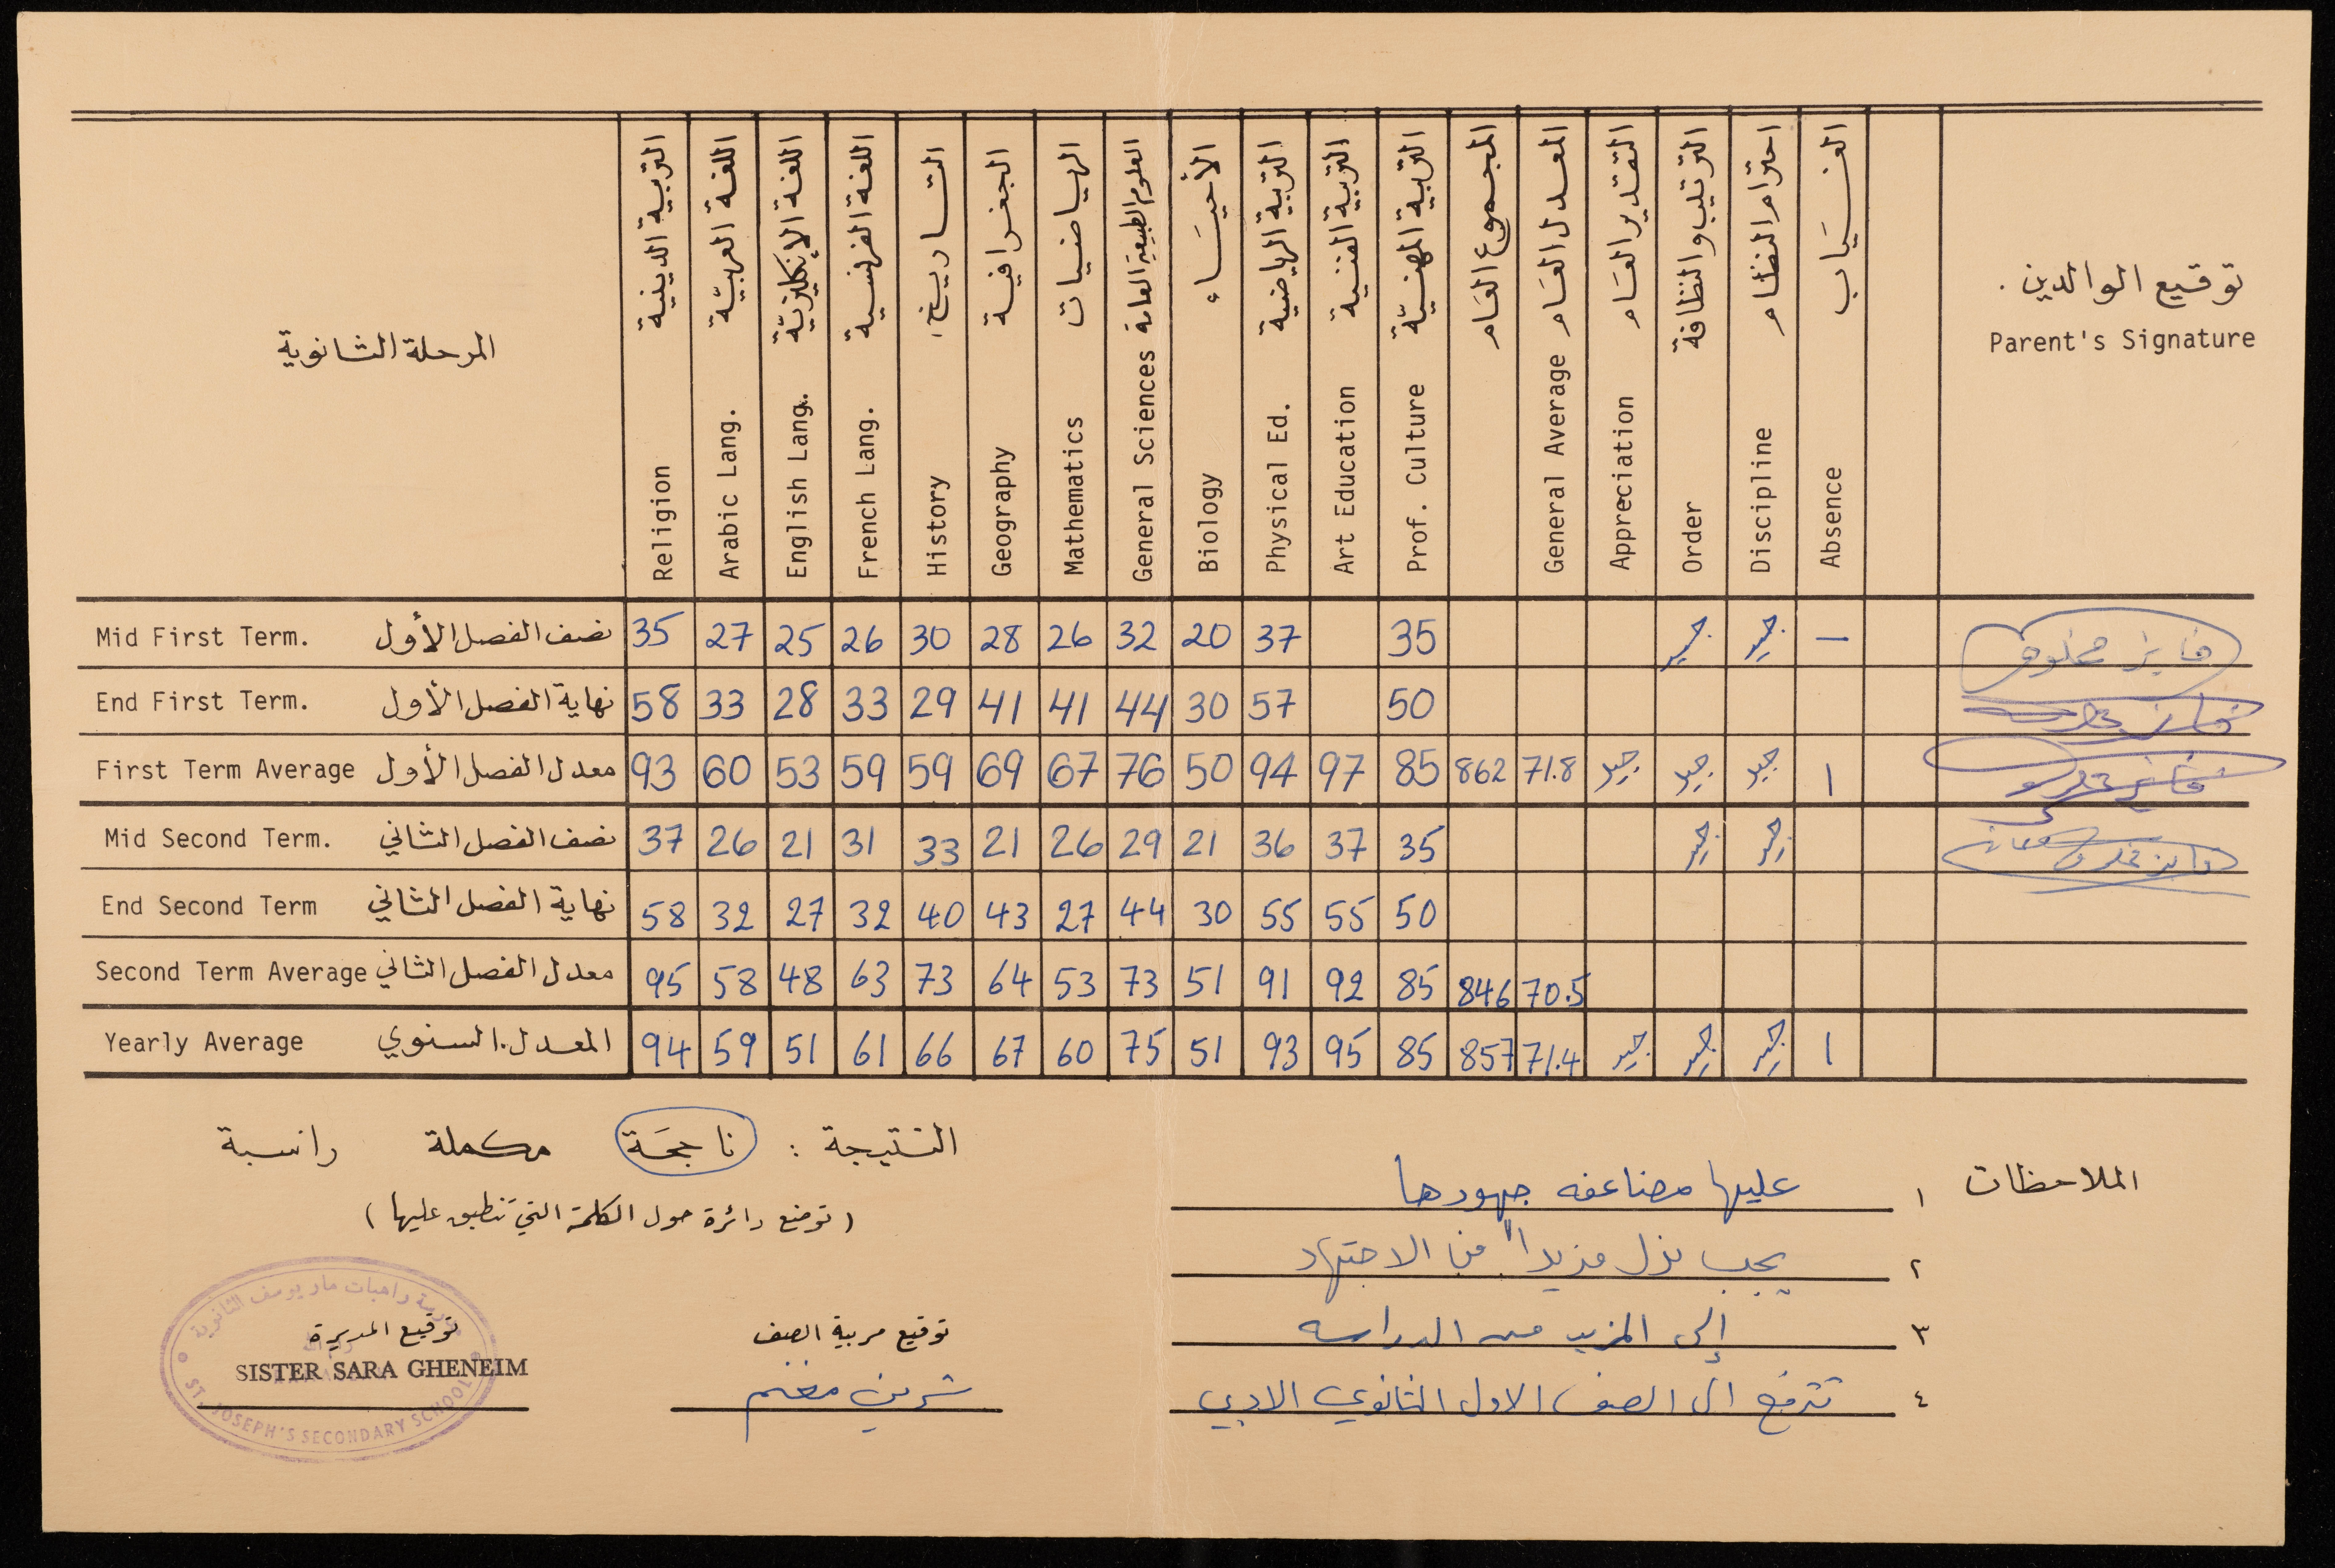 المرحلة الثانوية
التربية الدينية Religion
اللغة العربيّة Arabic Lang.
اللغة الإنكليزيّة English Lang.
اللغة الفرنسية French Lang.
التاريخ History
الجغرافية Geography
الرياضيات Mathematics
العلوم الطبيعية العامة General Sciences
الأحيَاء Biology
التربية الرياضية Physical Ed.
التربية الفنية Art Education
التربية المهنيّة Prof. Culture
المجموع العَام
المعدل العَام General Average
التقدير العَام Appreciation
الترتيب والنظافة Order
احترام النظام Discipline
الغيَاب Absence
توقيع الوالدين.
Parent's Signature
Mid First Term. نصف الفصل الأول 35 27 25 26 30 28 26 32 20 37 35 جيد جيد —
End First Term. نهاية الفصل الأول 58 33 28 33 29 41 41 44 30 57 50
First Term Average معدل الفصل الأول 93 60 53 59 59 69 67 76 50 94 97 85 862 71.8 جيد جيد جيد ١
Mid Second Term. نصف الفصل الثاني 37 26 21 31 33 21 26 29 21 36 37 35 جيد جيد
End Second Term نهاية الفصل الثاني 58 32 27 32 40 43 27 44 30 55 55 50
Second Term Average معدل الفصل الثاني 95 58 48 63 73 64 53 73 51 91 92 85 846 70.5
Yearly Average المعدل السنوي 94 59 51 61 66 67 60 75 51 93 95 85 857 71.4 جيد جيد جيد ١
النتيجة : ناجحَة مكملة راسبة
(توضع دائرة حول الكلمة التي تنطبق عليها)
الملاحظات ١ عليها مضاعفه جهودها
٢ يجب بذل مزيداً من الاجتهاد
٣ إلى المزيد من الدراسه
٤ تترفع الى الصف الاول الثانوي الادبي
توقيع مربية الصف
شرين مغنم
توقيع المديرة
SISTER SARA GHENEIM
مدرسة راهبات مار يوسف الثانوية
ST. JOSEPH'S SECONDARY SCHOOL